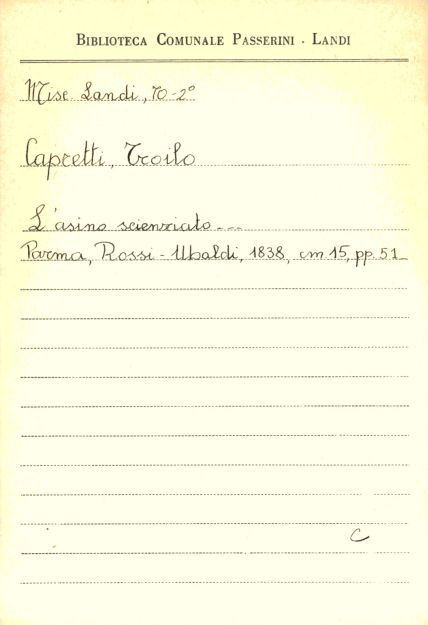 BIBLIOTECA COMUNALE PASSERINI - LANDI
Misc. Landi, 70-2°
Capretti, Troilo
L'asino scienziato...
Parma, Rossi-Ubaldi, 1838, cm 15, pp. 51
C